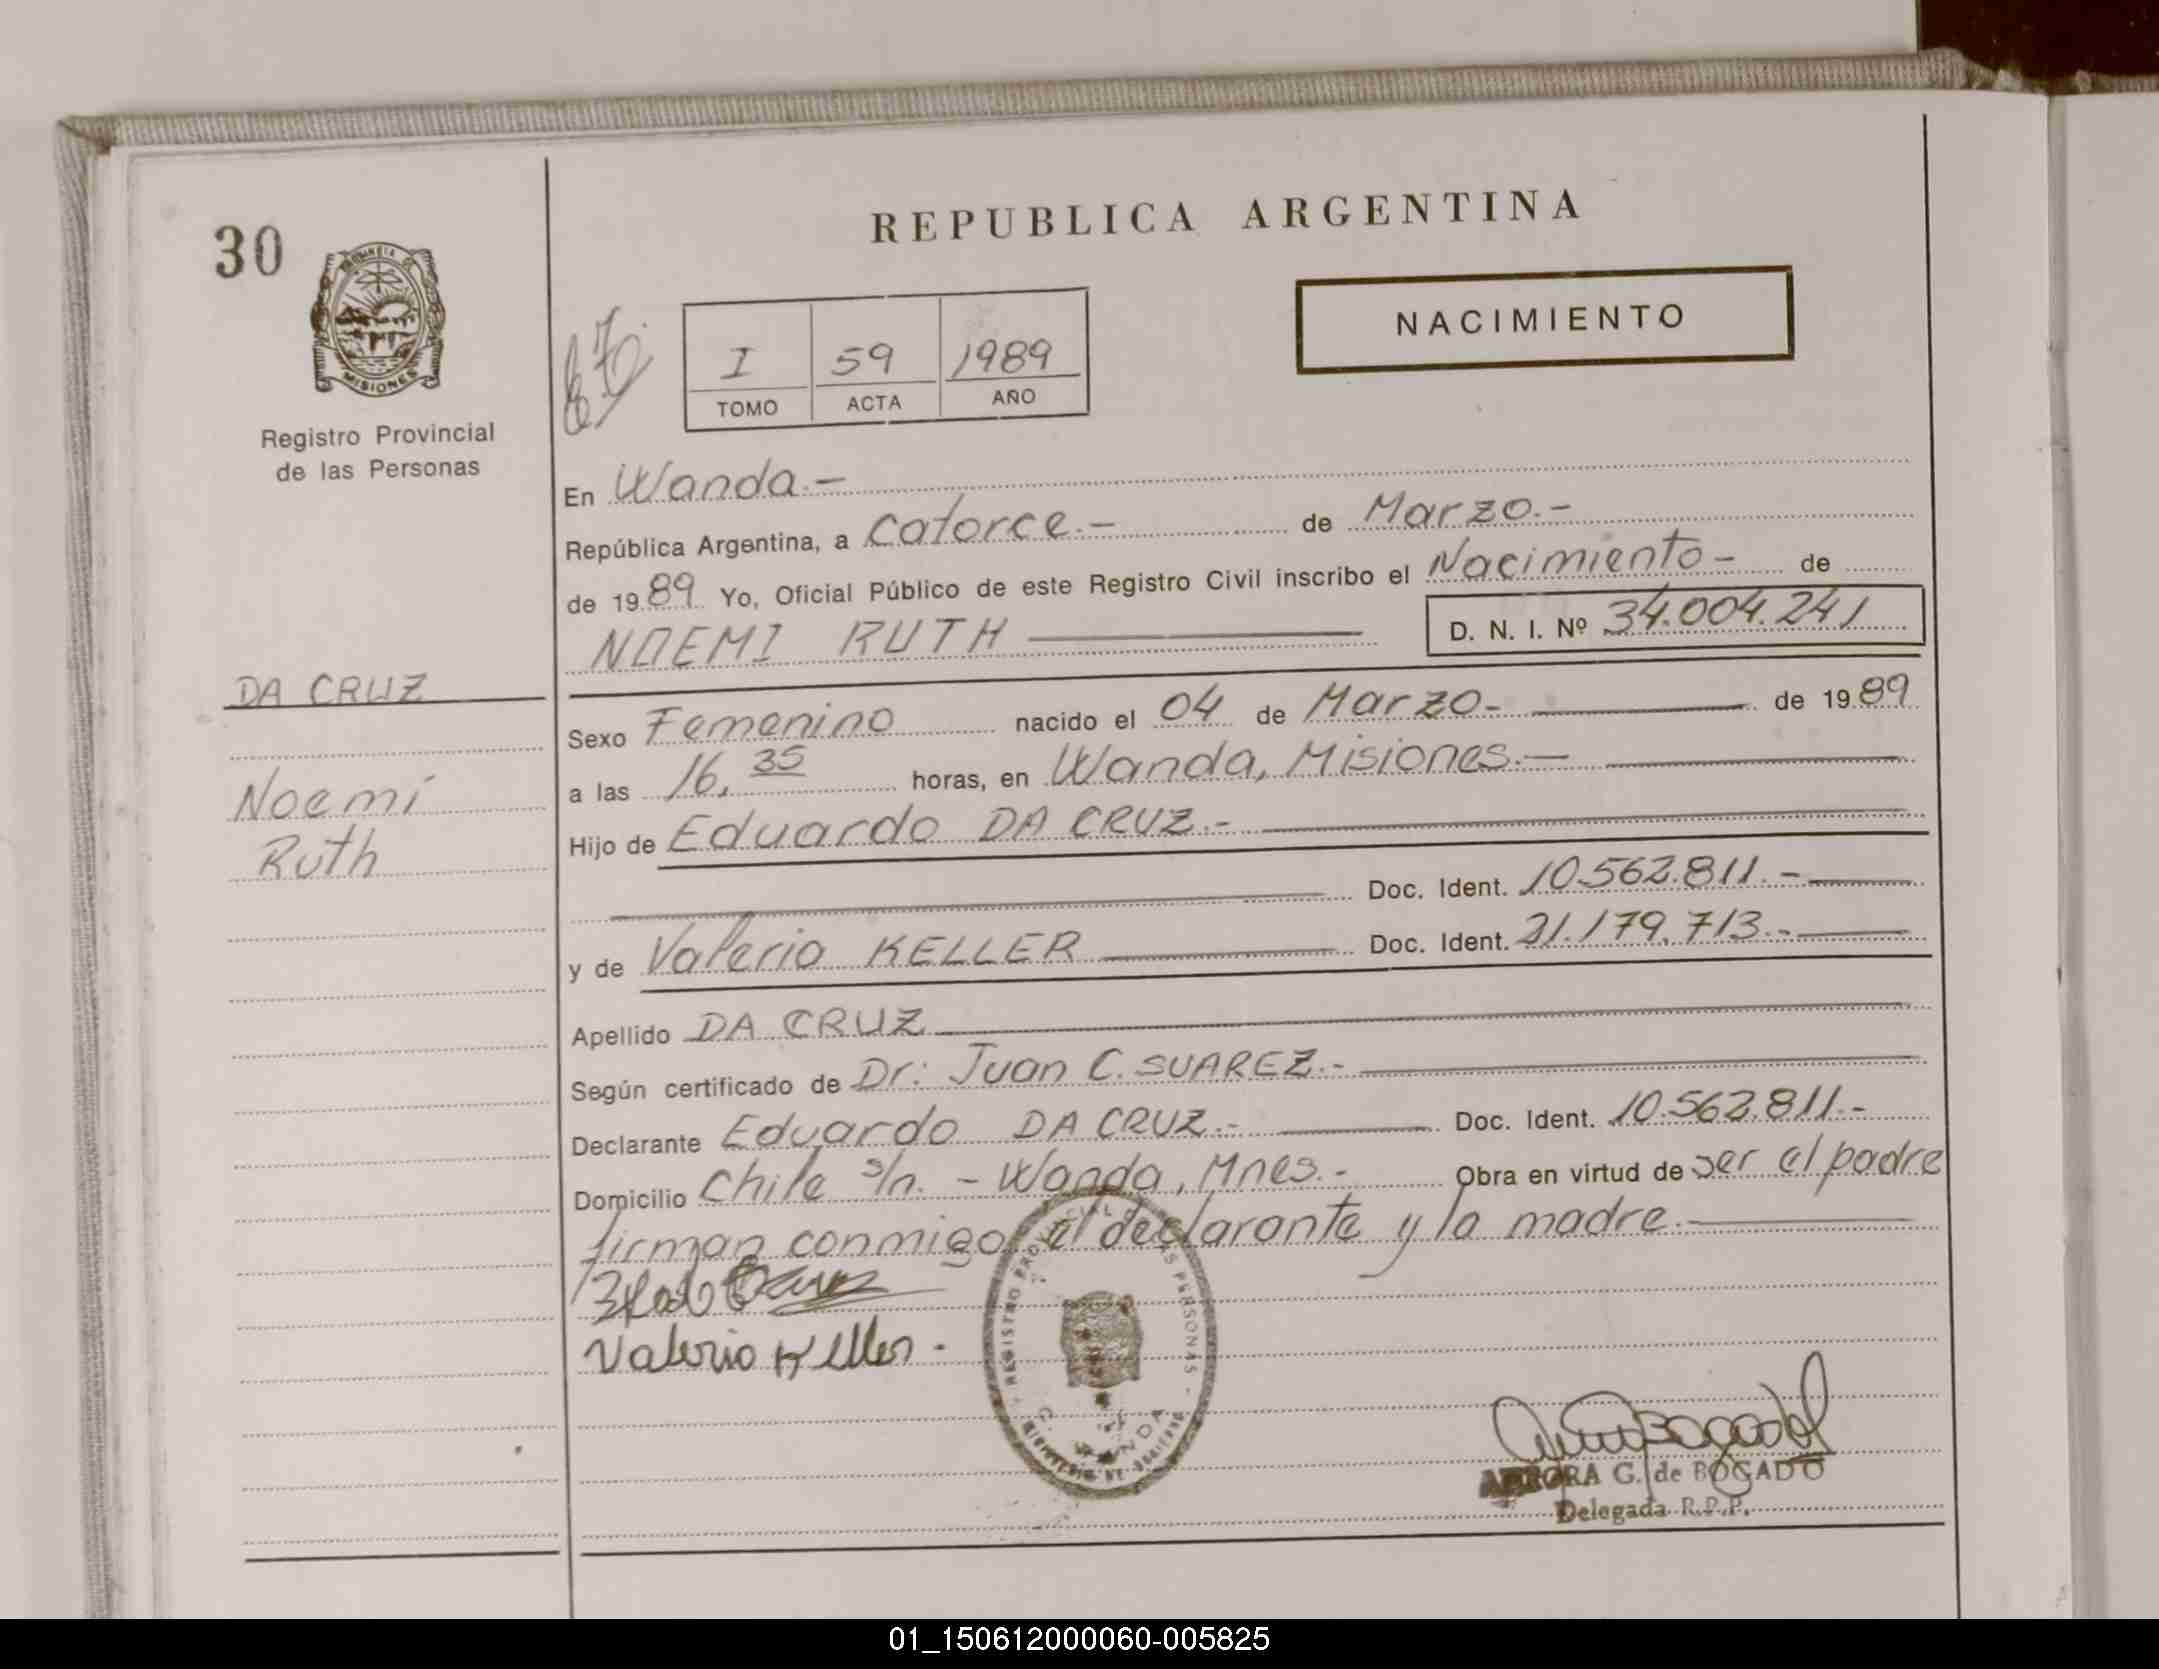 REPUBLICA ARGENTINA
30
NACIMIENTO
PROVINCIA DE
MISIONES
Registro Provincial
de las Personas
I 59 1989
TOMO ACTA AÑO
En Wanda.-
República Argentina, a Catorce.- de Marzo.-
de 1989 Yo, Oficial Público de este Registro Civil inscribo el Nacimiento- de
NOEMI RUTH D. N. I. Nº 34.004.241
DA CRUZ
Noemi
Ruth
Sexo Femenino nacido el 04 de Marzo- de 1989
a las 16,35 horas, en Wanda, Misiones.-
Hijo de Eduardo DA CRUZ.-
Doc. Ident. 10.562.811.-
y de Valeria KELLER Doc. Ident. 21.179.713.-
Apellido DA CRUZ
Según certificado de Dr: Juan C. SUAREZ.-
Declarante Eduardo DA CRUZ.- Doc. Ident. 10.562.811.-
Domicilio Chile s/n. - Wanda, Mnes.- Obra en virtud de ser el padre
firman conmigo el declarante y la madre.-
Valeria Keller.
REGISTRO PROVINCIAL DE LAS PERSONAS
AURORA G. de BOGADO
Delegada R.P.P.
01_150612000060-005825